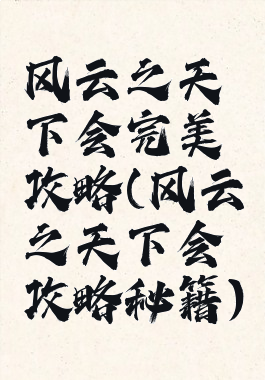 风云之天
下会完美
攻略(风云
之天下会
攻略秘籍)